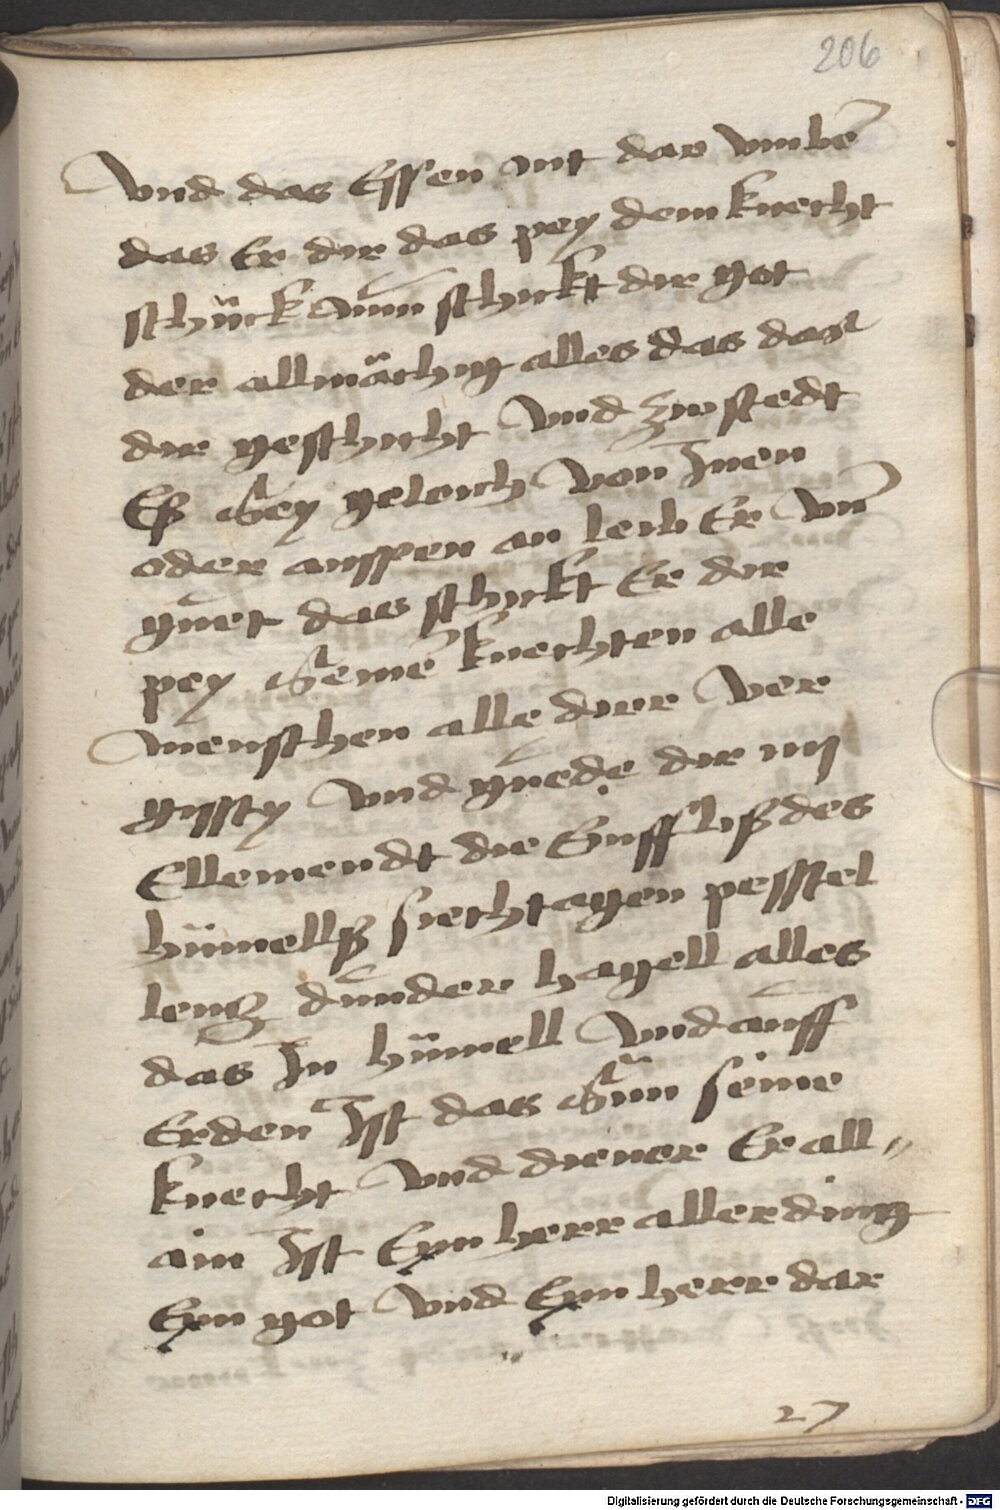 206
Vnd das Essen nit dar vmbe
das Er dir das pey dem knecht
schückt Nun schickt dir got
der allmächig alles das das
dir geschicht vnd zu stedt
Eß Sey geleich von Inen
oder aussen an leib Er vnd
guet das schickt Er dir
pey Seine knechten alle
menschen alle dier ver
gifft vnd guede dir iiij
Ellemendt die des
hümellß siechtagen pesstel
lenz dunder hagell alles
das In hümell vnd auff
Erden Ist das Sün seine
knecht vnd diener Er all
ain Ist Eyn herr aller ding
Eyn got vnd Eyn herr dar
27
Digitalisierung gefördert durch die Deutsche Forschungsgemeinschaft - DFG